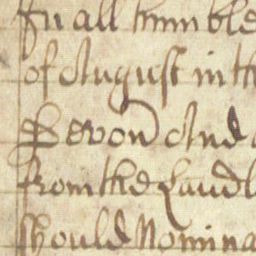 In all humble
of August in th
Devon And
from the Landl
should Nomina